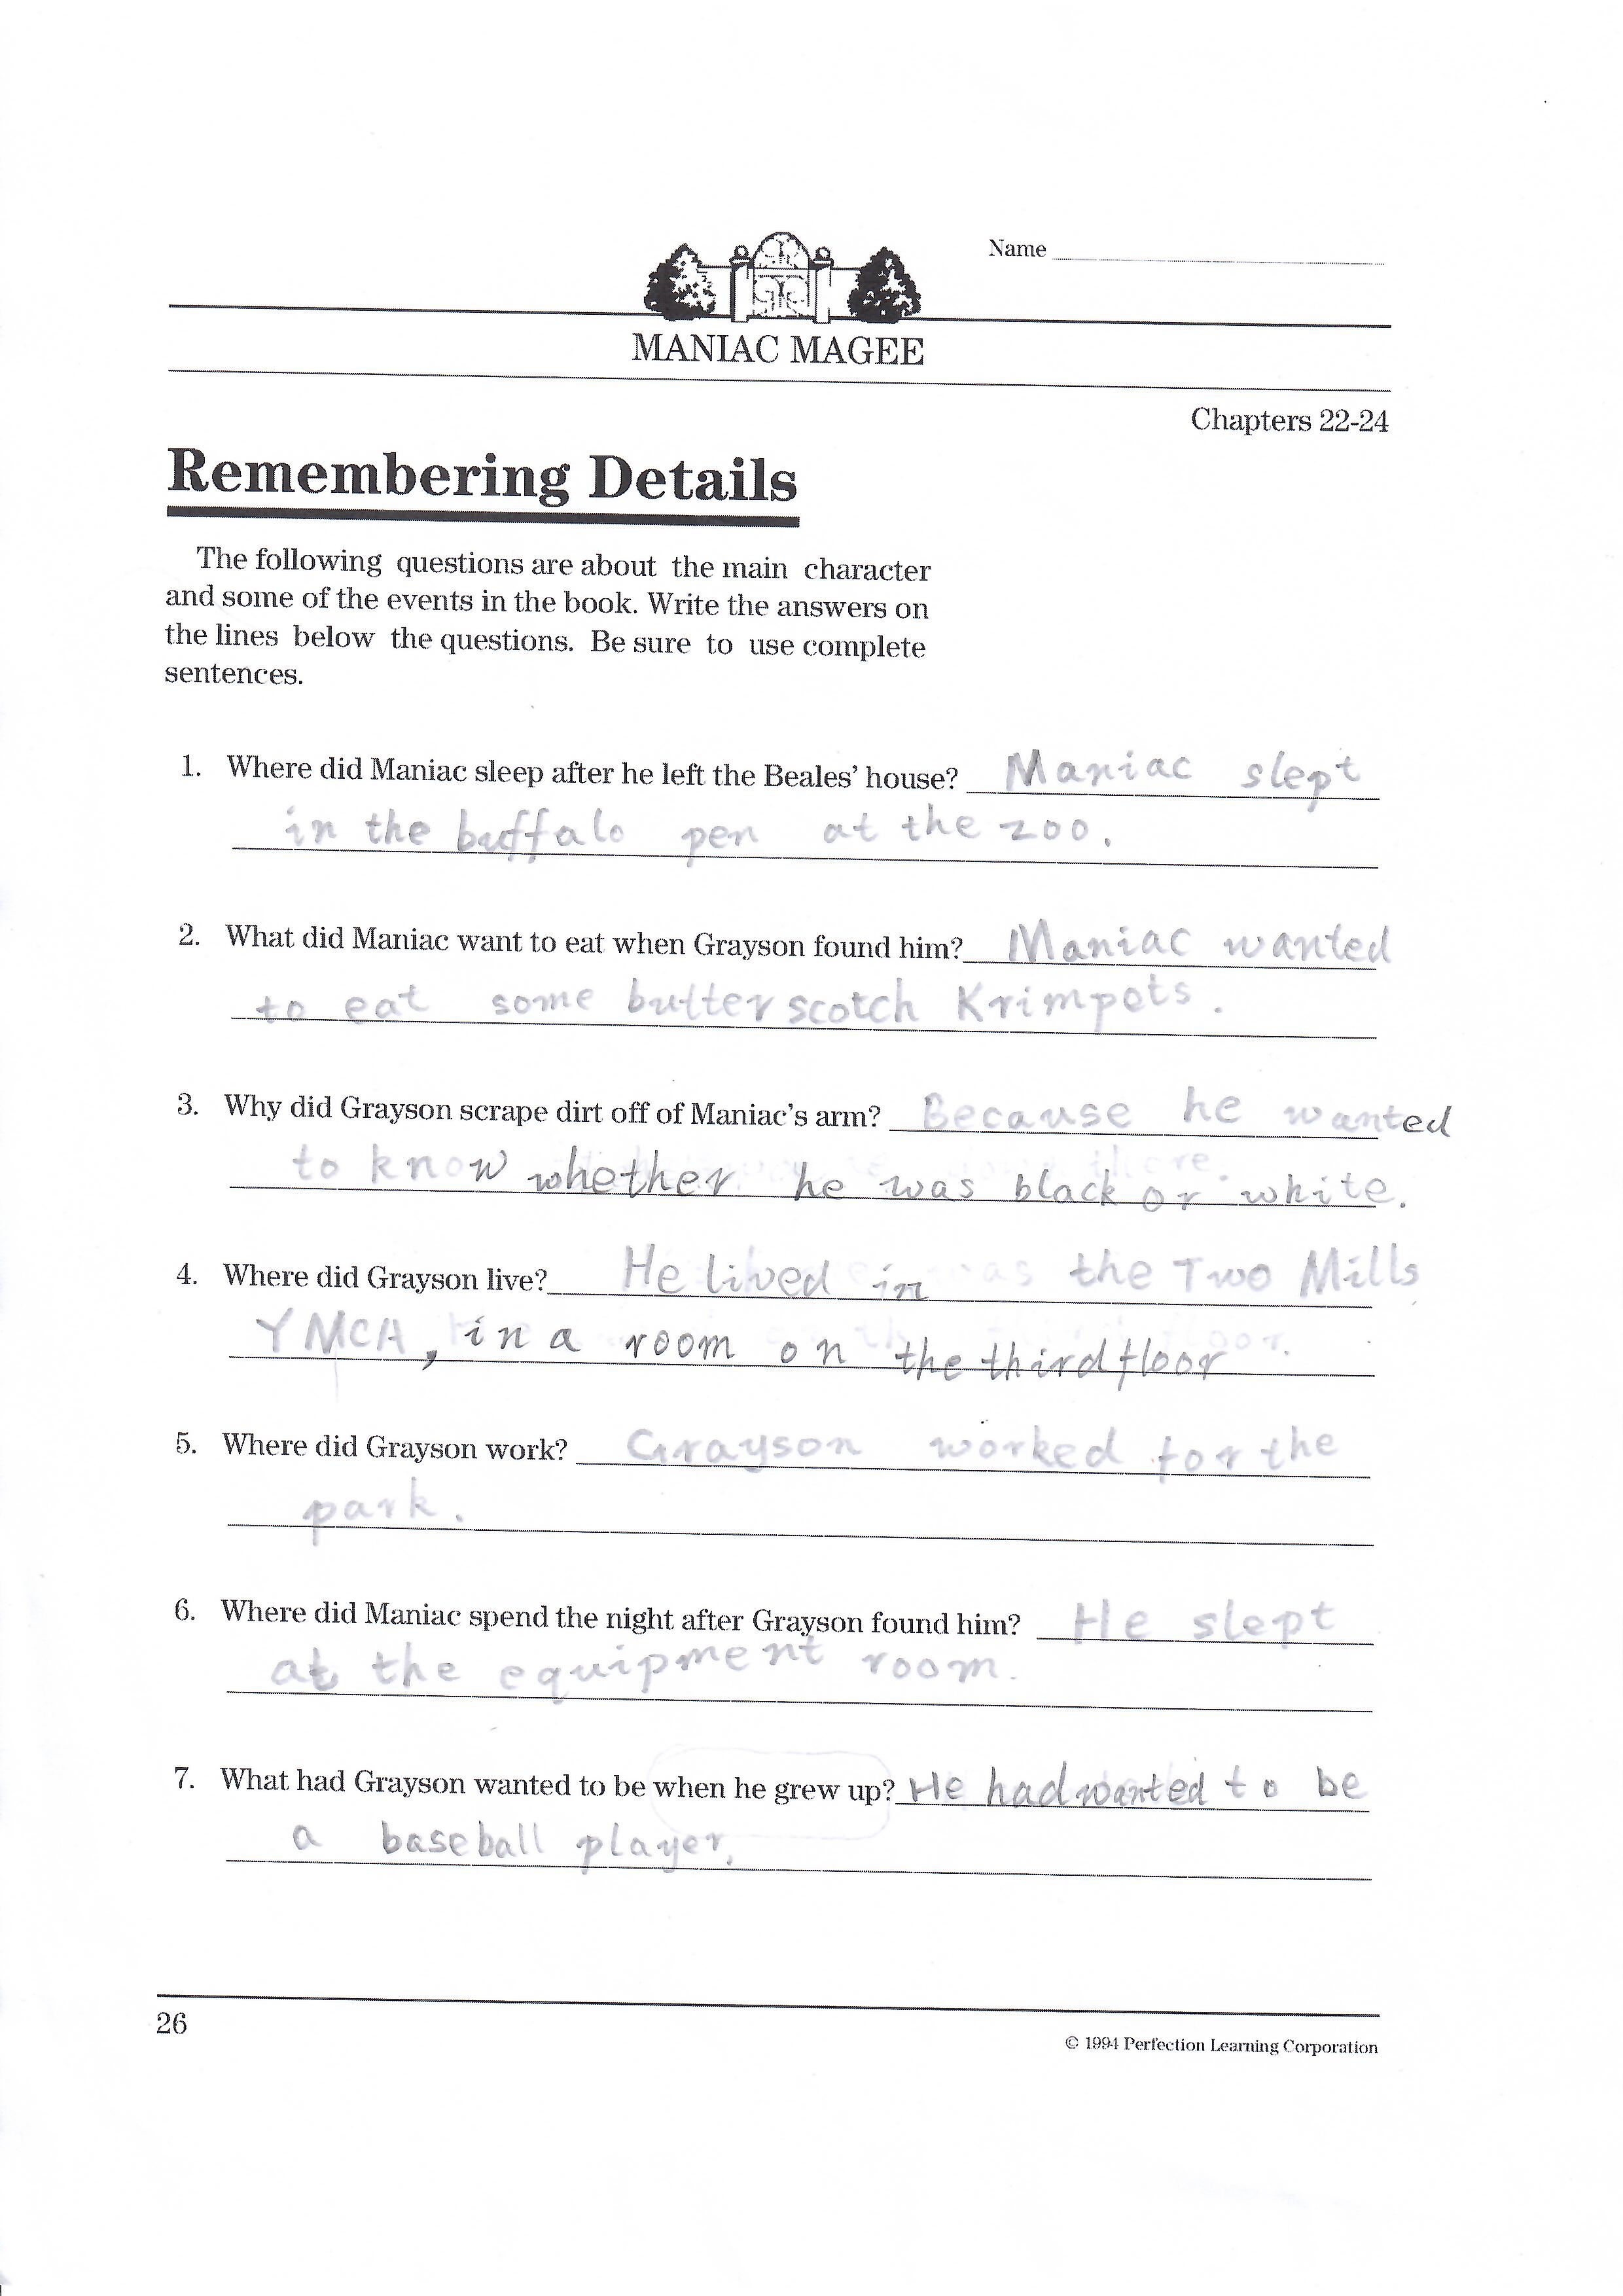 Name
MANIAC MAGEE
Chapters 22-24
Remembering Details
The following questions are about the main character
and some of the events in the book. Write the answers on
the lines below the questions. Be sure to use complete
sentences.
1. Where did Maniac sleep after he left the Beales' house? Maniac slept
in the buffalo pen at the zoo.
2. What did Maniac want to eat when Grayson found him? Maniac wanted
to eat some butterscotch Krimpets.
3. Why did Grayson scrape dirt off of Maniac's arm? Because he wanted
to know whether he was black or white.
4. Where did Grayson live? He lived in the Two Mills
YMCA, in a room on the third floor
5. Where did Grayson work? Grayson worked for the
park.
6. Where did Maniac spend the night after Grayson found him? He slept
at the equipment room.
7. What had Grayson wanted to be when he grew up? He had wanted to be
a baseball player.
26
© 1994 Perfection Learning Corporation